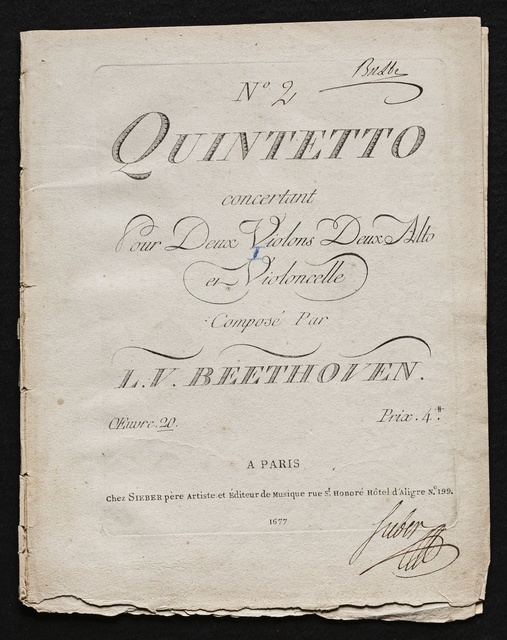 Nº 2
QUINTETTO
concertant
Pour Deux Violons Deux Alto
et Violoncelle
Composé Par
L.V. BEETHOVEN.
Œuvre. 20.
Prix. 4ᴴ.
A PARIS
Chez SIEBER père Artiste et Éditeur de Musique rue Sᵗ. Honoré Hôtel d'Aligre Nº. 199.
1677
Sieber